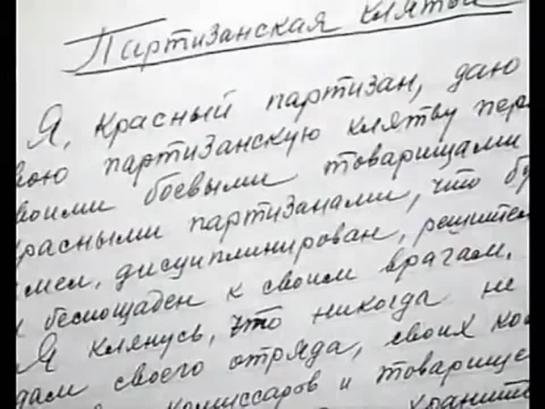 Партизанская клятва
Я, красный партизан, даю
свою партизанскую клятву пер
своими боевыми товарищами
красными партизанами, что бу
смел, дисциплинирован, решител
и беспощаден к своим врагам.
Я клянусь, что никогда не
дам своего отряда, своих ком
комиссаров и товарище
хранить